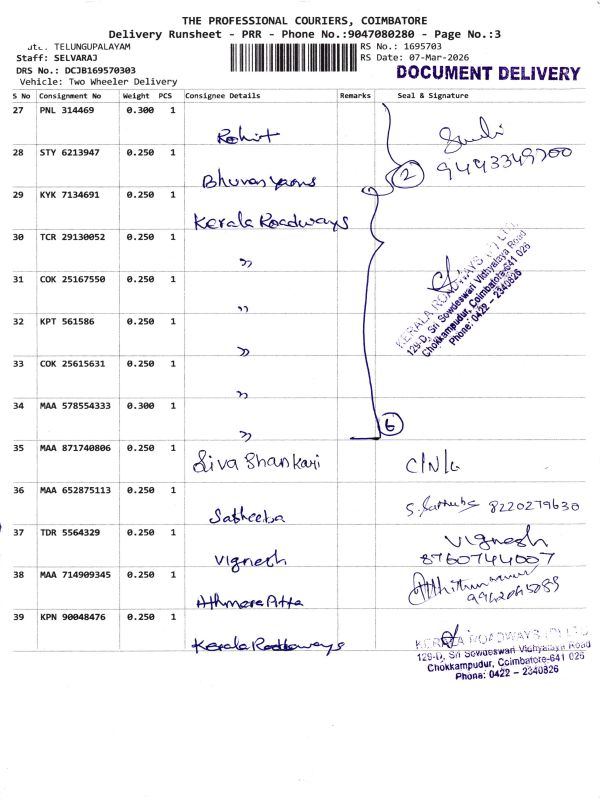 THE PROFESSIONAL COURIERS, COIMBATORE
Delivery Runsheet - PRR - Phone No.:9047080280 - Page No.:3
TELUNGUPALAYAM
RS No.: 1695703
Staff: SELVARAJ
RS Date: 07-Mar-2026
DRS No.: DCJB169570303
DOCUMENT DELIVERY
Vehicle: Two Wheeler Delivery
S No Consignment No Weight PCS Consignee Details Remarks Seal & Signature
27 PNL 314469 0.300 1
Rohit
28 STY 6213947 0.250 1
2
29 KYK 7134691 0.250 1
Kerala Roadways
30 TCR 29130052 0.250 1
"
31 COK 25167550 0.250 1
"
KERALA ROADWAYS (P) LTD.
129-D, Sri Sowdeswari Vidhyalaya Road
Chokkampudur, Coimbatore-641 026
Phone: 0422 - 2340826
32 KPT 561586 0.250 1
"
33 COK 25615631 0.250 1
"
34 MAA 578554333 0.300 1
"
6
35 MAA 871740806 0.250 1
Siva Shankari
36 MAA 652875113 0.250 1
8220279630
37 TDR 5564329 0.250 1
Vignesh
Vignesh
8760744007
38 MAA 714909345 0.250 1
39 KPN 90048476 0.250 1
Kerala Roadways
KERALA ROADWAYS (P) LTD.
129-D, Sri Sowdeswari Vidhyalaya Road
Chokkampudur, Coimbatore-641 026
Phone: 0422 - 2340826